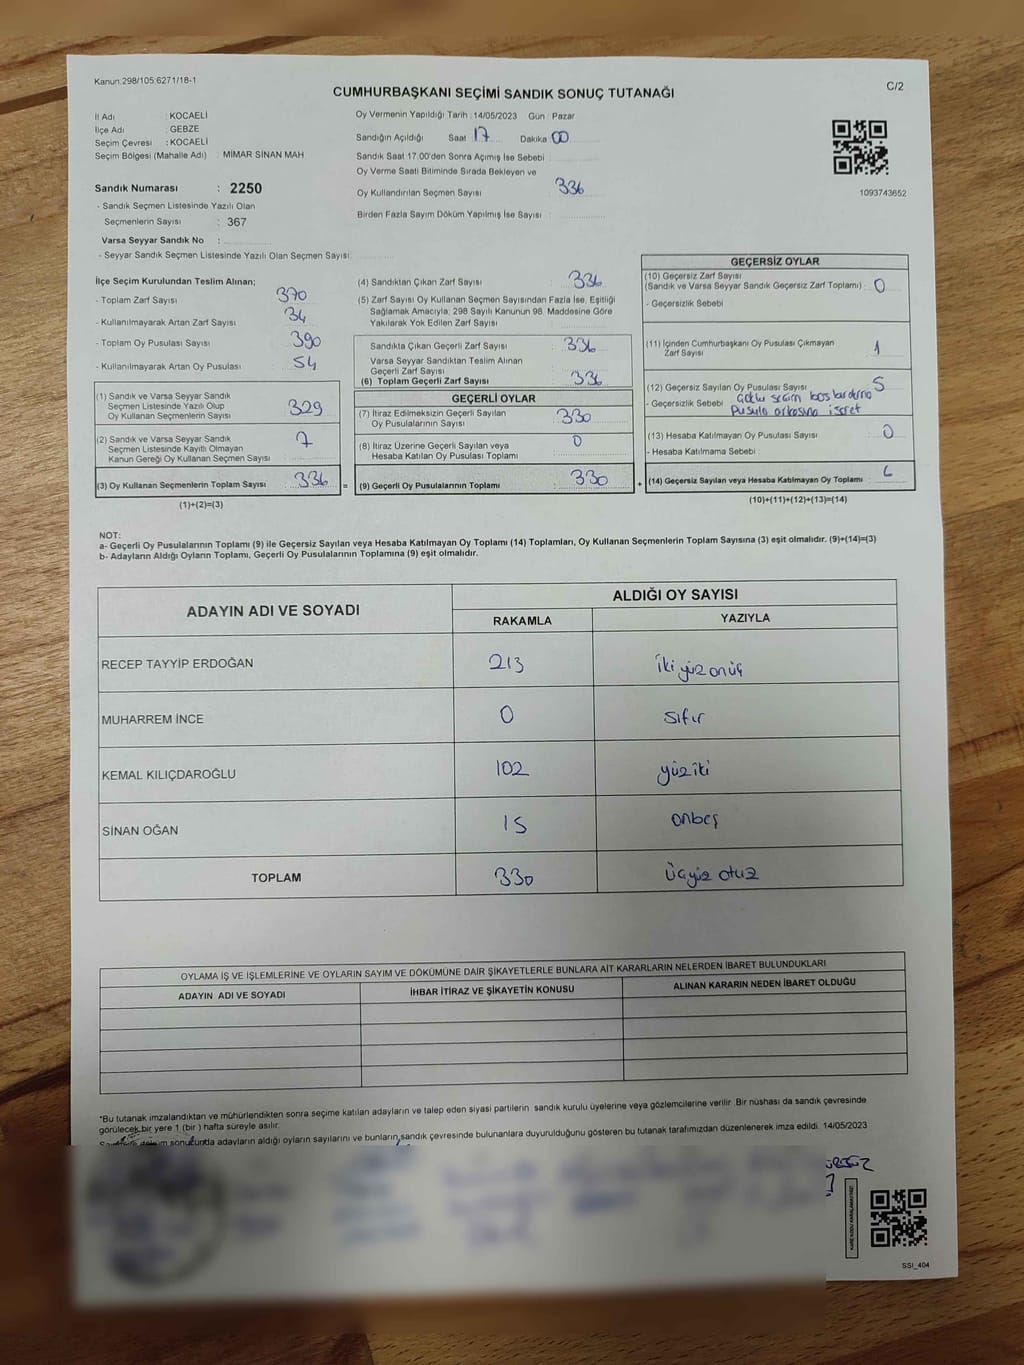 Kanun:298/105:6271/18-1
C/2
CUMHURBAŞKANI SEÇİMİ SANDIK SONUÇ TUTANAĞI
İl Adı : KOCAELİ
İlçe Adı : GEBZE
Seçim Çevresi : KOCAELİ
Seçim Bölgesi (Mahalle Adı) : MİMAR SİNAN MAH
Sandık Numarası : 2250
- Sandık Seçmen Listesinde Yazılı Olan
Seçmenlerin Sayısı : 367
Varsa Seyyar Sandık No :
- Seyyar Sandık Seçmen Listesinde Yazılı Olan Seçmen Sayısı:
Oy Vermenin Yapıldığı Tarih : 14/05/2023 Gün : Pazar
Sandığın Açıldığı Saat 17 Dakika 00
Sandık Saat 17:00'den Sonra Açımış İse Sebebi :
Oy Verme Saati Bitiminde Sırada Bekleyen ve
Oy Kullandırılan Seçmen Sayısı : 336
Birden Fazla Sayım Döküm Yapılmış İse Sayısı :
1093743652
İlçe Seçim Kurulundan Teslim Alınan;
- Toplam Zarf Sayısı 370
- Kullanılmayarak Artan Zarf Sayısı 34
- Toplam Oy Pusulası Sayısı 390
- Kullanılmayarak Artan Oy Pusulası 54
(1) Sandık ve Varsa Seyyar Sandık
Seçmen Listesinde Yazılı Olup
Oy Kullanan Seçmenlerin Sayısı 329
(2) Sandık ve Varsa Seyyar Sandık
Seçmen Listesinde Kayıtlı Olmayan
Kanun Gereği Oy Kullanan Seçmen Sayısı 7
(3) Oy Kullanan Seçmenlerin Toplam Sayısı : 336 =
(1)+(2)=(3)
(4) Sandıktan Çıkan Zarf Sayısı : 336
(5) Zarf Sayısı Oy Kullanan Seçmen Sayısından Fazla İse, Eşitliği
Sağlamak Amacıyla; 298 Sayılı Kanunun 98. Maddesine Göre
Yakılarak Yok Edilen Zarf Sayısı :
Sandıkta Çıkan Geçerli Zarf Sayısı : 336
Varsa Seyyar Sandıktan Teslim Alınan
Geçerli Zarf Sayısı
(6) Toplam Geçerli Zarf Sayısı : 336
GEÇERLİ OYLAR
(7) İtiraz Edilmeksizin Geçerli Sayılan
Oy Pusulalarının Sayısı : 330
(8) İtiraz Üzerine Geçerli Sayılan veya
Hesaba Katılan Oy Pusulası Toplamı : 0
(9) Geçerli Oy Pusulalarının Toplamı : 330 +
GEÇERSİZ OYLAR
(10) Geçersiz Zarf Sayısı
(Sandık ve Varsa Seyyar Sandık Geçersiz Zarf Toplamı) : 0
- Geçersizlik Sebebi :
(11) İçinden Cumhurbaşkanı Oy Pusulası Çıkmayan
Zarf Sayısı : 1
(12) Geçersiz Sayılan Oy Pusulası Sayısı : 5
- Geçersizlik Sebebi :
Pusula arkasına işaret
(13) Hesaba Katılmayan Oy Pusulası Sayısı : 0
- Hesaba Katılmama Sebebi :
(14) Geçersiz Sayılan veya Hesaba Katılmayan Oy Toplamı : 6
(10)+(11)+(12)+(13)=(14)
NOT:
a- Geçerli Oy Pusulalarının Toplamı (9) ile Geçersiz Sayılan veya Hesaba Katılmayan Oy Toplamı (14) Toplamları, Oy Kullanan Seçmenlerin Toplam Sayısına (3) eşit olmalıdır. (9)+(14)=(3)
b- Adayların Aldığı Oyların Toplamı, Geçerli Oy Pusulalarının Toplamına (9) eşit olmalıdır.
ADAYIN ADI VE SOYADI
ALDIĞI OY SAYISI
RAKAMLA YAZIYLA
RECEP TAYYİP ERDOĞAN 213 İkiyüzonüç
MUHARREM İNCE 0 sıfır
KEMAL KILIÇDAROĞLU 102 yüziki
SİNAN OĞAN 15 onbeş
TOPLAM 330 Üçyüz otuz
OYLAMA İŞ VE İŞLEMLERİNE VE OYLARIN SAYIM VE DÖKÜMÜNE DAİR ŞİKAYETLERLE BUNLARA AİT KARARLARIN NELERDEN İBARET BULUNDUKLARI
ADAYIN ADI VE SOYADI İHBAR İTİRAZ VE ŞİKAYETİN KONUSU ALINAN KARARIN NEDEN İBARET OLDUĞU
*Bu tutanak imzalandıktan ve mühürlendikten sonra seçime katılan adayların ve talep eden siyasi partilerin sandık kurulu üyelerine veya gözlemcilerine verilir. Bir nüshası da sandık çevresinde
görülecek bir yere 1 (bir) hafta süreyle asılır.
sonucunda adayların aldığı oyların sayılarını ve bunların sandık çevresinde bulunanlara duyurulduğunu gösteren bu tutanak tarafımızdan düzenlenerek imza edildi. 14/05/2023
KARE KODU KARALAMAYINIZ!
SSI_404